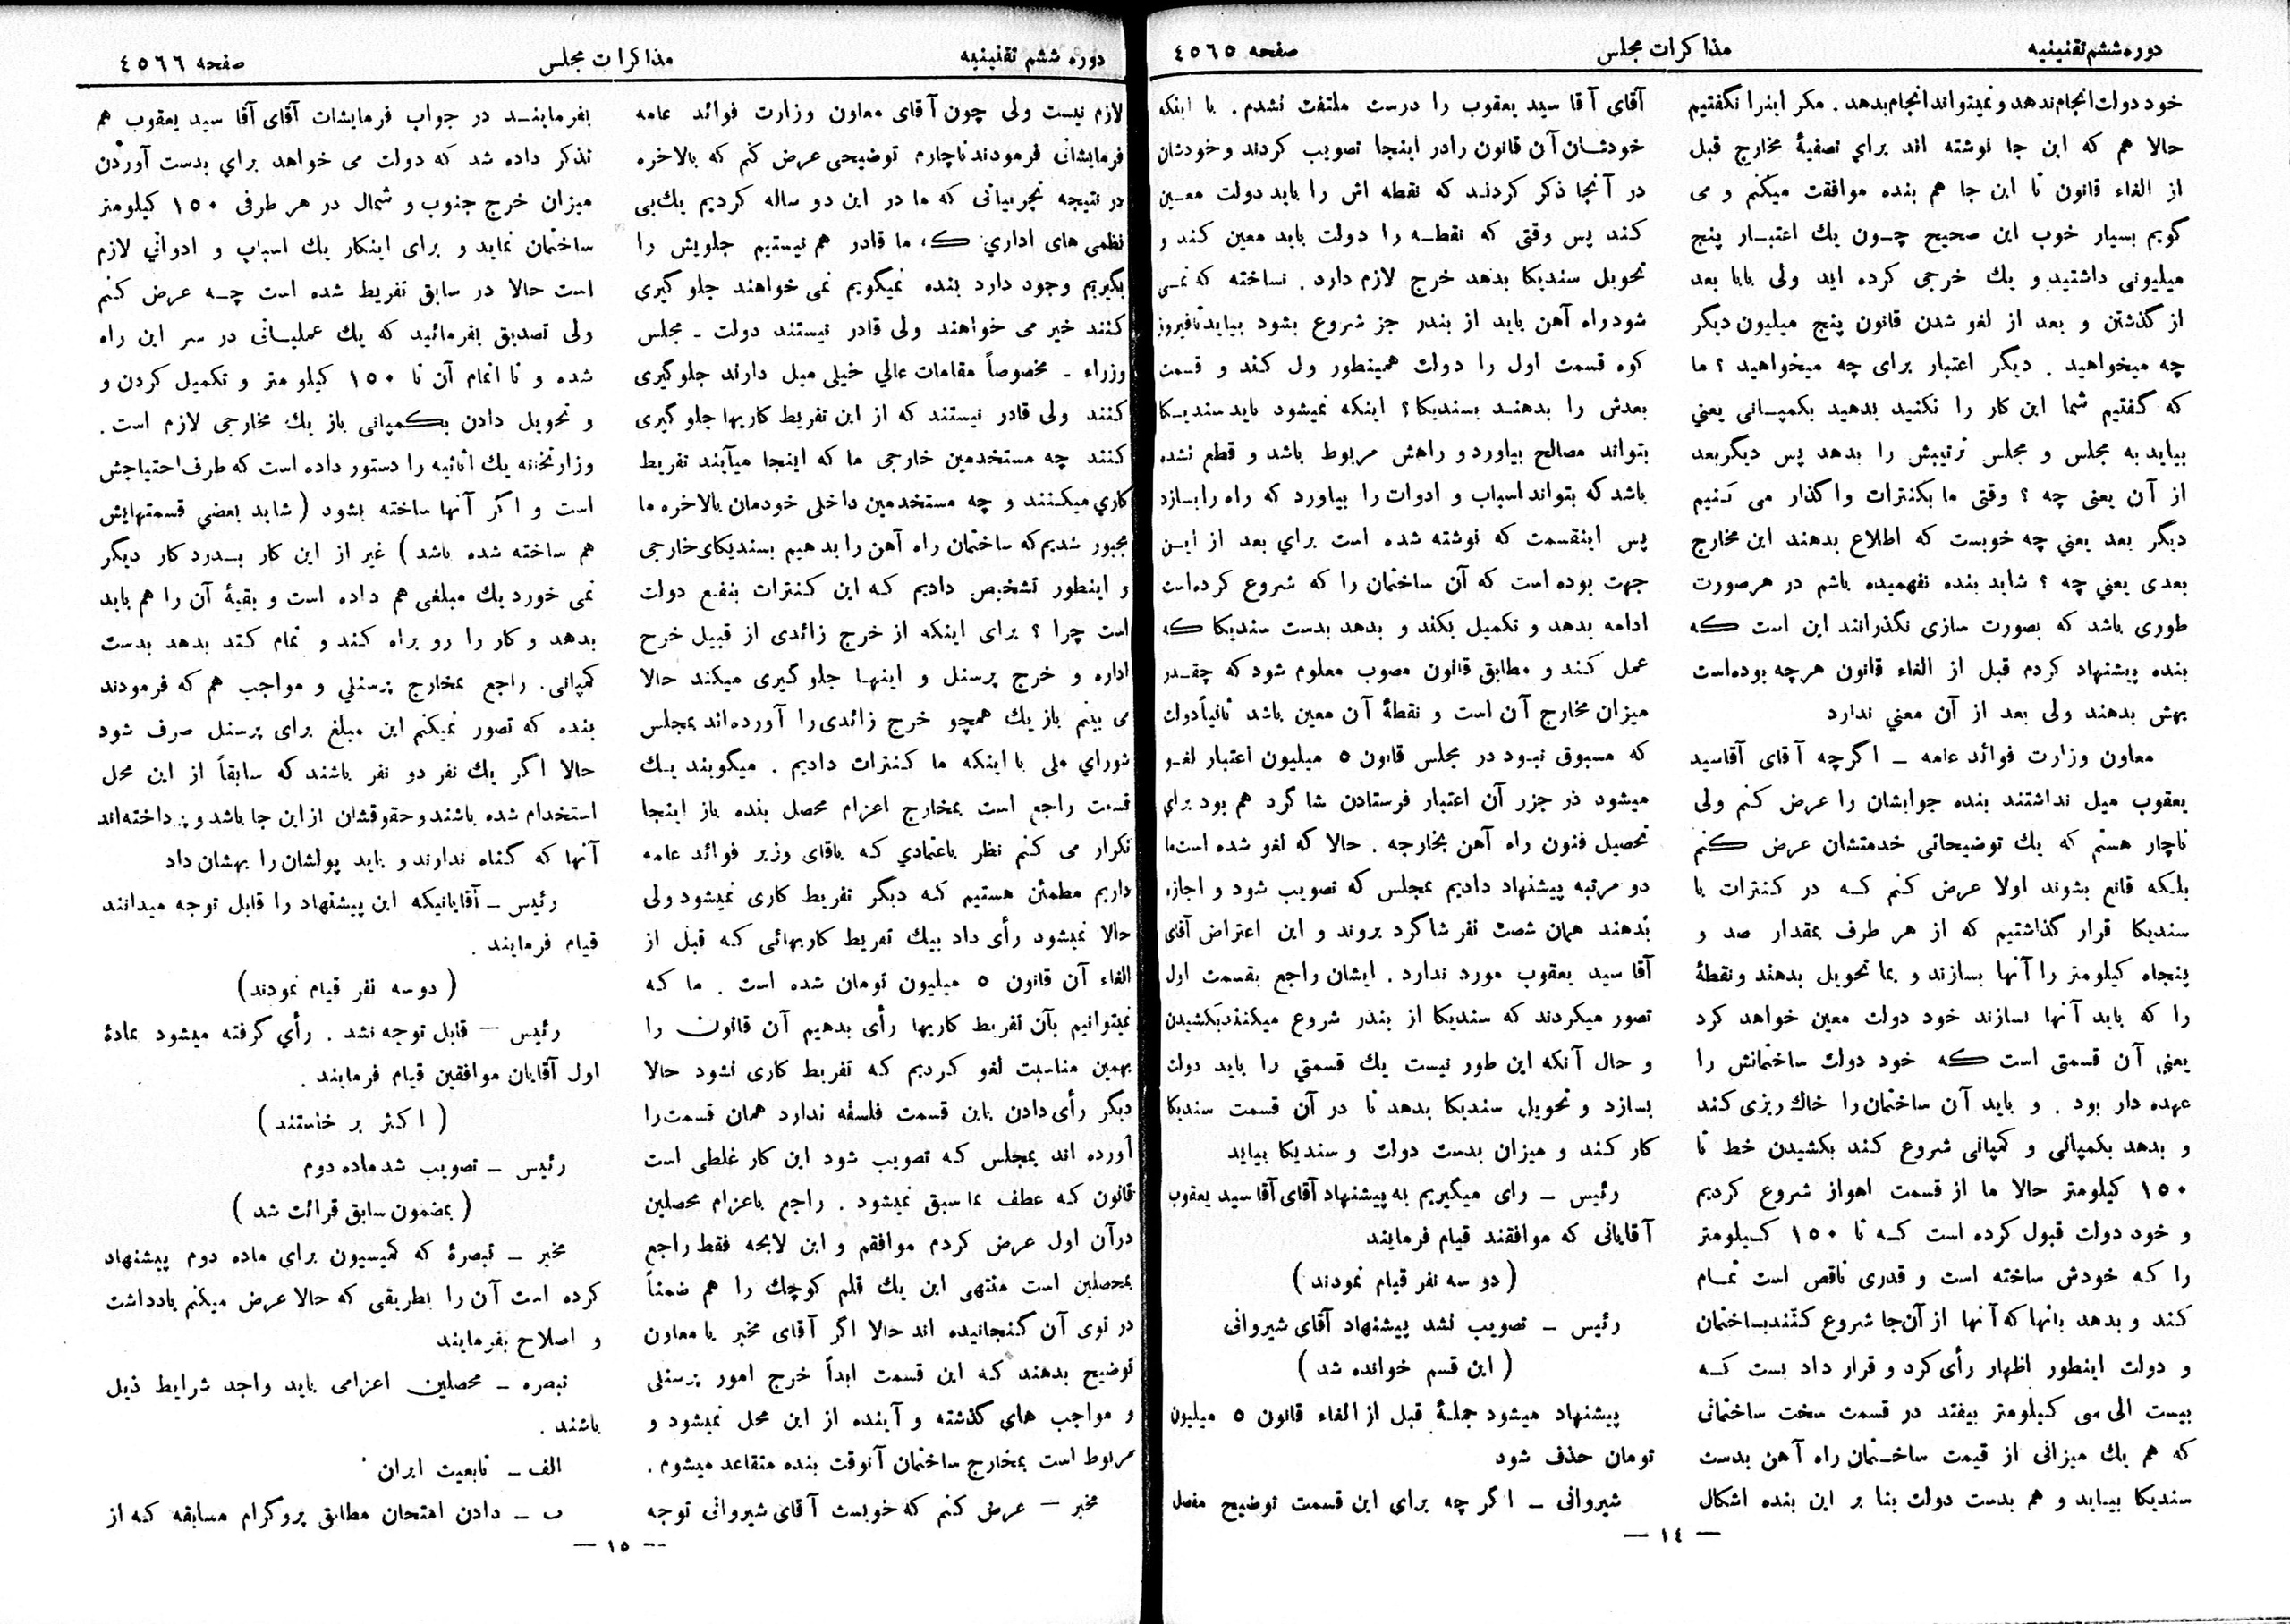 دوره ششم تقنینیه
مذاکرات مجلس
صفحه ٤٥٦٥
خود دولت انجام ندهد و نمیتواند انجام بدهد . مگر اینرا نگفتیم
حالا هم که این جا نوشته اند برای تصفیهٔ مخارج قبل
از الغاء قانون تا این جا هم بنده موافقت میکنم و می
گویم بسیار خوب این صحیح چـون یك اعتبـار پنج
میلیونی داشتید و یك خرجی کرده اید ولی بابا بعد
از گذشتن و بعد از لغو شدن قانون پنج میلیون دیگر
چه میخواهید . دیگر اعتبار برای چه میخواهید ؟ ما
که گفتیم شما این کار را نکنید بدهید بکمپـانی یعنی
بیاید به مجلس و مجلس ترتیبش را بدهد پس دیگر بعد
از آن یعنی چه ؟ وقتی ما بکنترات واگذار می کنیم
دیگر بعد یعنی چه خوبست که اطلاع بدهند این مخارج
بعدی یعنی چه ؟ شاید بنده نفهمیده باشم در هرصورت
طوری باشد که بصورت سازی نگذرانند این است که
بنده پیشنهاد کردم قبل از الغاء قانون هرچه بوده‌است
بهش بدهند ولی بعد از آن معنی ندارد
معاون وزارت فوائد عامه ــ اگرچه آقای آقاسید
یعقوب میل نداشتند بنده جوابشان را عرض کنم ولی
ناچار هستم که یك توضیحاتی خدمتشان عرض کنم
بلکه قانع بشوند اولا عرض کنم کـه در کنترات با
سندیکا قرار گذاشتیم که از هر طرف بمقدار صد و
پنجاه کیلومتر را آنها بسازند و بما تحویل بدهند و نقطهٔ
را که باید آنها بسازند خود دولت معین خواهد کرد
یعنی آن قسمتی است که خود دولت ساختمانش را
عهده دار بود . و باید آن ساختمان را خاك ریزی کند
و بدهد بکمپانی و کمپانی شروع کند بکشیدن خط تا
۱۵۰ کیلومتر حالا ما از قسمت اهواز شروع کردیم
و خود دولت قبول کرده است کـه تا ۱۵۰ کـیلومتر
را کـه خودش ساخته است و قدری ناقص است تمـام
کند و بدهد بانها که آنها از آن‌جا شروع کنند بساختمان
و دولت اینطور اظهار رأی کرد و قرار داد بست کـه
بیست الی سی کیلومتر بیفتد در قسمت سخت ساختمانی
که هم یك میزانی از قیمت ساخـتمان راه آهن بدست
سندیکا بیـاید و هم بدست دولت بنا بر این بنده اشکال
آقای آقا سید یعقوب را درست ملتفت نشدم . با اینکه
خودشـان آن قانون را در اینجا تصویب کردند و خودشان
در آنجا ذکر کردنـد که نقطه اش را باید دولت معـین
کـند پس وقتی که نقطـه را دولت باید معین کند و
تحویل سندیکا بدهد خرج لازم دارد . نساخته که نمـی
شود راه آهن باید از بندر جز شروع بشود بیاید تا فیروز
کوه قسمت اول را دولت همینطور ول کند و قسمت
بعدش را بدهنـد بسندیکا ؟ اینکه نمیشود باید سندیـکا
بتواند مصالح بیاورد و راهش مربوط باشد و قطع نشده
باشد که بتواند اسباب و ادوات را بیاورد که راه را بسازد
پس اینقسمت که نوشته شده است برای بعد از ایـن
جهت بوده است که آن ساختمان را که شروع کرده‌است
ادامه بدهد و تکمیل بکند و بدهد بدست سندیکا که
عمل کـند و مطابق قانون مصوب معلوم شود که چقـدر
میزان مخارج آن است و نقطهٔ آن معین باشد ثانیاً دولت
که مسبوق نبـود در مجلس قانون ٥ میلیون اعتبار لغـو
میشود در جزر آن اعتبار فرستادن شاگرد هم بود برای
تحصیل فنون راه آهن بخارجه . حالا که لغو شده است ما
دو مرتبه پیشنهاد دادیم بمجلس که تصویب شود و اجازه
بدهند همان شصت نفر شاگرد بروند و این اعتراض آقای
آقا سید یعقوب مورد ندارد . ایشان راجع بقسمت اول
تصور میکردند که سندیکا از بندر شروع میکنند بکشیدن
و حال آنکه این طور نیست یك قسمتی را باید دولت
بسازد و تحویل سندیکا بدهد تا در آن قسمت سندیکا
کار کـند و میزان بدست دولت و سندیکا بیاید
رئیس ــ رای میگیریم به پیشنهاد آقای آقا سید یعقوب
آقایانی که موافقند قیام فرمایند
( دو سه نفر قیام نمودند )
رئیس ــ تصویب نشد پیشنهاد آقای شیروانی
( این قسم خوانده شد )
پیشنهاد میشود جملهٔ قبل از الغاء قانون ٥ میلیون
تومان حذف شود
شیروانی ــ اگر چه برای این قسمت توضیح مفصل
— ١٤ —
دوره ششم تقنینیه
مذاکرات مجلس
صفحه ٤٥٦٦
لازم نیست ولی چون آقای معاون وزارت فوائد عامه
فرمایشاتی فرمودند ناچارم توضیحی عرض کنم که بالاخره
در نتیجه تجربیاتی که ما در این دو ساله کردیم یك بی
نظمی های اداری که ما قادر هم نیستیم جلویش را
بگیریم وجود دارد بنده نمیگویم نمی خواهند جلوگیری
کنند خیر می خواهند ولی قادر نیستند دولت ــ مجلس
وزراء ــ مخصوصاً مقامات عالی خیلی میل دارند جلوگیری
کـنند ولی قادر نیستند که از این تفریط کاریها جلوگیری
کنند چه مستخدمین خارجی ما که اینجا میآیند تفریط
کاری میکـنند و چه مستخدمین داخلی خودمان بالاخره ما
مجبور شدیم که ساختمان راه آهن را بدهیم بسندیکای خارجی
و اینطور تشخیص دادیم کـه این کـنترات بنفـع دولت
است چرا ؟ برای اینکه از خرج زائدی از قبیل خرج
اداره و خرج پرسنل و اینهـا جلوگیری میکند حالا
می بینم باز یك همچو خرج زائدی را آورده‌اند بمجلس
شورای ملی با اینکه ما کـنترات دادیم . میگویند یـك
قسمت راجع است بمخارج اعزام محصل بنده باز اینجا
تکرار می کنم نظر باعتمادی کـه باقای وزیر فوائد عامه
داریم مطمئن هستیم کـه دیگر تفریط کاری نمیشود ولی
حالا نمیشود رأی داد بیك تفریط کاریهائی کـه قبل از
الغاء آن قانون ٥ میلیون تومان شده است . ما کـه
نمیتوانیم بآن تفریط کاریها رأی بدهیم آن قانون را
بهمین مناسبت لغو کـردیم کـه تفریط کاری نشود حالا
دیگر رأی دادن باین قسمت فلسفه ندارد همان قسمت را
آورده اند بمجلس کـه تصویب شود این کار غلطی است
قانون کـه عطف بماسبق نمیشود . راجع باعزام محصلین
درآن اول عرض کردم موافقم و این لایحه فقط راجع
بمحصلین است منتهی این یك قلم کوچك را هم ضمناً
در توی آن گنجانیده اند حالا اگر آقای مخبر یا معاون
توضیح بدهند کـه این قسمت ابداً خرج امور پرسنلی
و مواجب های گذشته و آینده از این محل نمیشود و
مربوط است بمخارج ساختمان آنوقت بنده متقاعد میشوم .
مخبر — عرض کنم که خوبست آقای شیروانی توجه
بفرماینـد در جواب فرمایشات آقای آقا سید یعقوب هم
تذکر داده شد که دولت می خواهد برای بدست آوردن
میزان خرج جنوب و شمال در هر طرفی ۱٥۰ کیلومتر
ساختمان نماید و برای اینکار یك اسباب و ادواتی لازم
است حالا در سابق تفریط شده است چـه عرض کـنم
ولی تصدیق بفرمائید که یك عملیـاتی در سر این راه
شده و تا اتمام آن تا ۱٥۰ کیلو متر و تکمیل کردن و
و تحویل دادن بکمپانی باز یك مخارجی لازم است .
وزارتخانه یك اثاثیه را دستور داده است که طرف احتیاجش
است و اگر آنها ساخته بشود ( شاید بعضی قسمتهایش
هم ساخته شده باشد ) غیر از این کار بـدرد کار دیگر
نمی خورد یك مبلغی هم داده است و بقیهٔ آن را هم باید
بدهد و کار را رو براه کند و تمام کند بدهد بدست
کمپانی . راجع بمخارج پرسنلی و مواجب هم که فرمودند
بنده که تصور نمیکنم این مبلغ برای پرسنل صرف شود
حالا اگر یك نفر دو نفر باشند که سابقاً از این محل
استخدام شده باشند و حقوقشان از این جا باشد و پرداخته‌اند
آنها که گناه ندارند و باید پولشان را بهشان داد
رئیس ــ آقایانیکه این پیشنهاد را قابل توجه میدانند
قیام فرمایند .
( دو سه نفر قیام نمودند )
رئیس — قابل توجه نشد . رأی گرفته میشود بمادهٔ
اول آقایان موافقین قیام فرمایند .
( اکثر بر خاستند )
رئیس ــ تصویب شد ماده دوم
( بمضمون سابق قرائت شد )
مخبر ــ تبصرهٔ که کمیسیون برای ماده دوم پیشنهاد
کرده است آن را بطریقی که حالا عرض میکنم یادداشت
و اصلاح بفرمایند
تبصره ــ محصلین اعزامی باید واجد شرایط ذیل
باشند .
الف ــ تابعیت ایران
ب ــ دادن امتحان مطابق پروگرام مسابقه که از
— ١٥ —